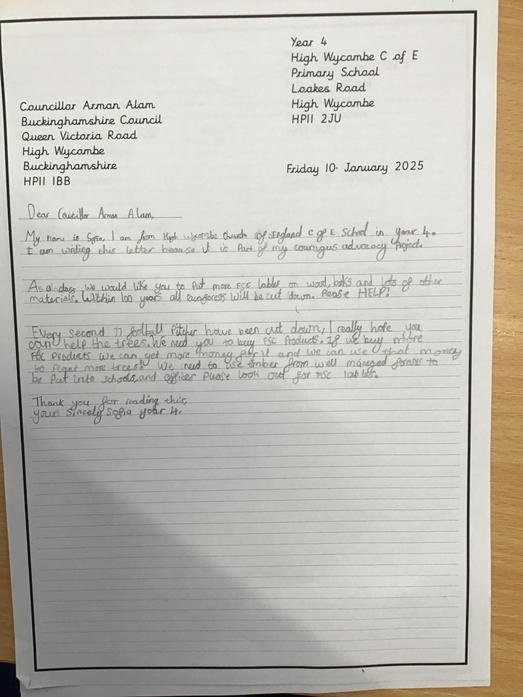 Year 4
High Wycombe C of E
Primary School
Loakes Road
High Wycombe
HP11 2JU
Councillor Arman Alam
Buckinghamshire Council
Queen Victoria Road
High Wycombe
Buckinghamshire
HP11 1BB
Friday 10 January 2025
Dear Councillor Arman Alam,
My name is Sofia, I am from High Wycombe Church of England C of E School in year 4.
I am writing this letter because it is Part of my courageous advocacy Project.
As a class we would like you to Put more FSC lables on wood, books and lots of other
materials. Within 100 years all rainforests will be cut down. Please HELP!
Every second 77 football Pitches have been cut down, I really hope you
can help the trees. We need you to buy FSC Products. If we buy more
FSC Products we can get more money for it and we can use that money
to more trees. We need to use timber from well forests to
be Put into schools, and offices Please look out for FSC lables.
Thank you for reading this,
yours Sofia year 4.